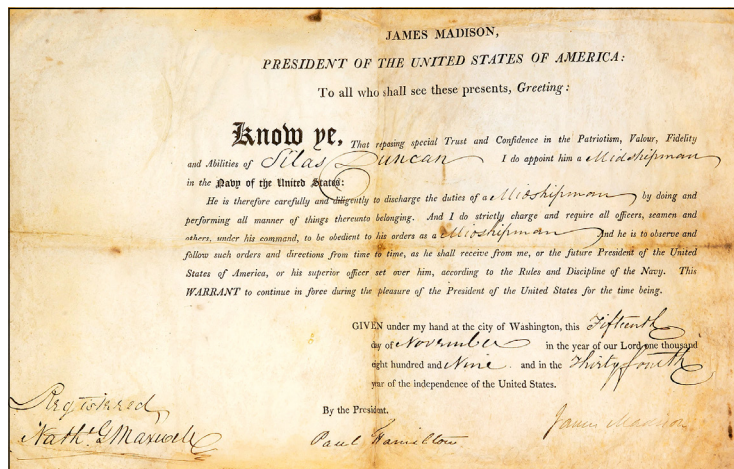 JAMES MADISON,
PRESIDENT OF THE UNITED STATES OF AMERICA:
To all who shall see these presents, Greeting:
Know ye, That reposing special Trust and Confidence in the Patriotism, Valour, Fidelity
and Abilities of Silas Duncan I do appoint him a Midshipman
in the Navy of the United States:
He is therefore carefully and diligently to discharge the duties of a Midshipman by doing and
performing all manner of things thereunto belonging. And I do strictly charge and require all officers, seamen and
others, under his command, to be obedient to his orders as a Midshipman And he is to observe and
follow such orders and directions from time to time, as he shall receive from me, or the future President of the United
States of America, or his superior officer set over him, according to the Rules and Discipline of the Navy. This
WARRANT to continue in force during the pleasure of the President of the United States for the time being.
GIVEN under my hand at the city of Washington, this Fifteenth
day of November in the year of our Lord one thousand
eight hundred and Nine and in the Thirty fourth
year of the independence of the United States.
By the President,
Registered,
Nath. G Maxwell
Paul Hamilton
James Madison